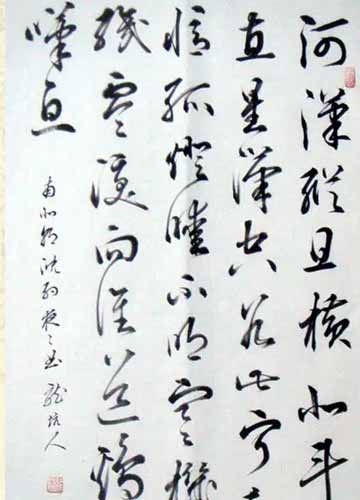 河漢縱且橫北斗
直星漢空若此寧
憶孤燈曖不明寒機
織零淚向誰道鷄
嘆息
南北朝沈約夜々曲 龍 人